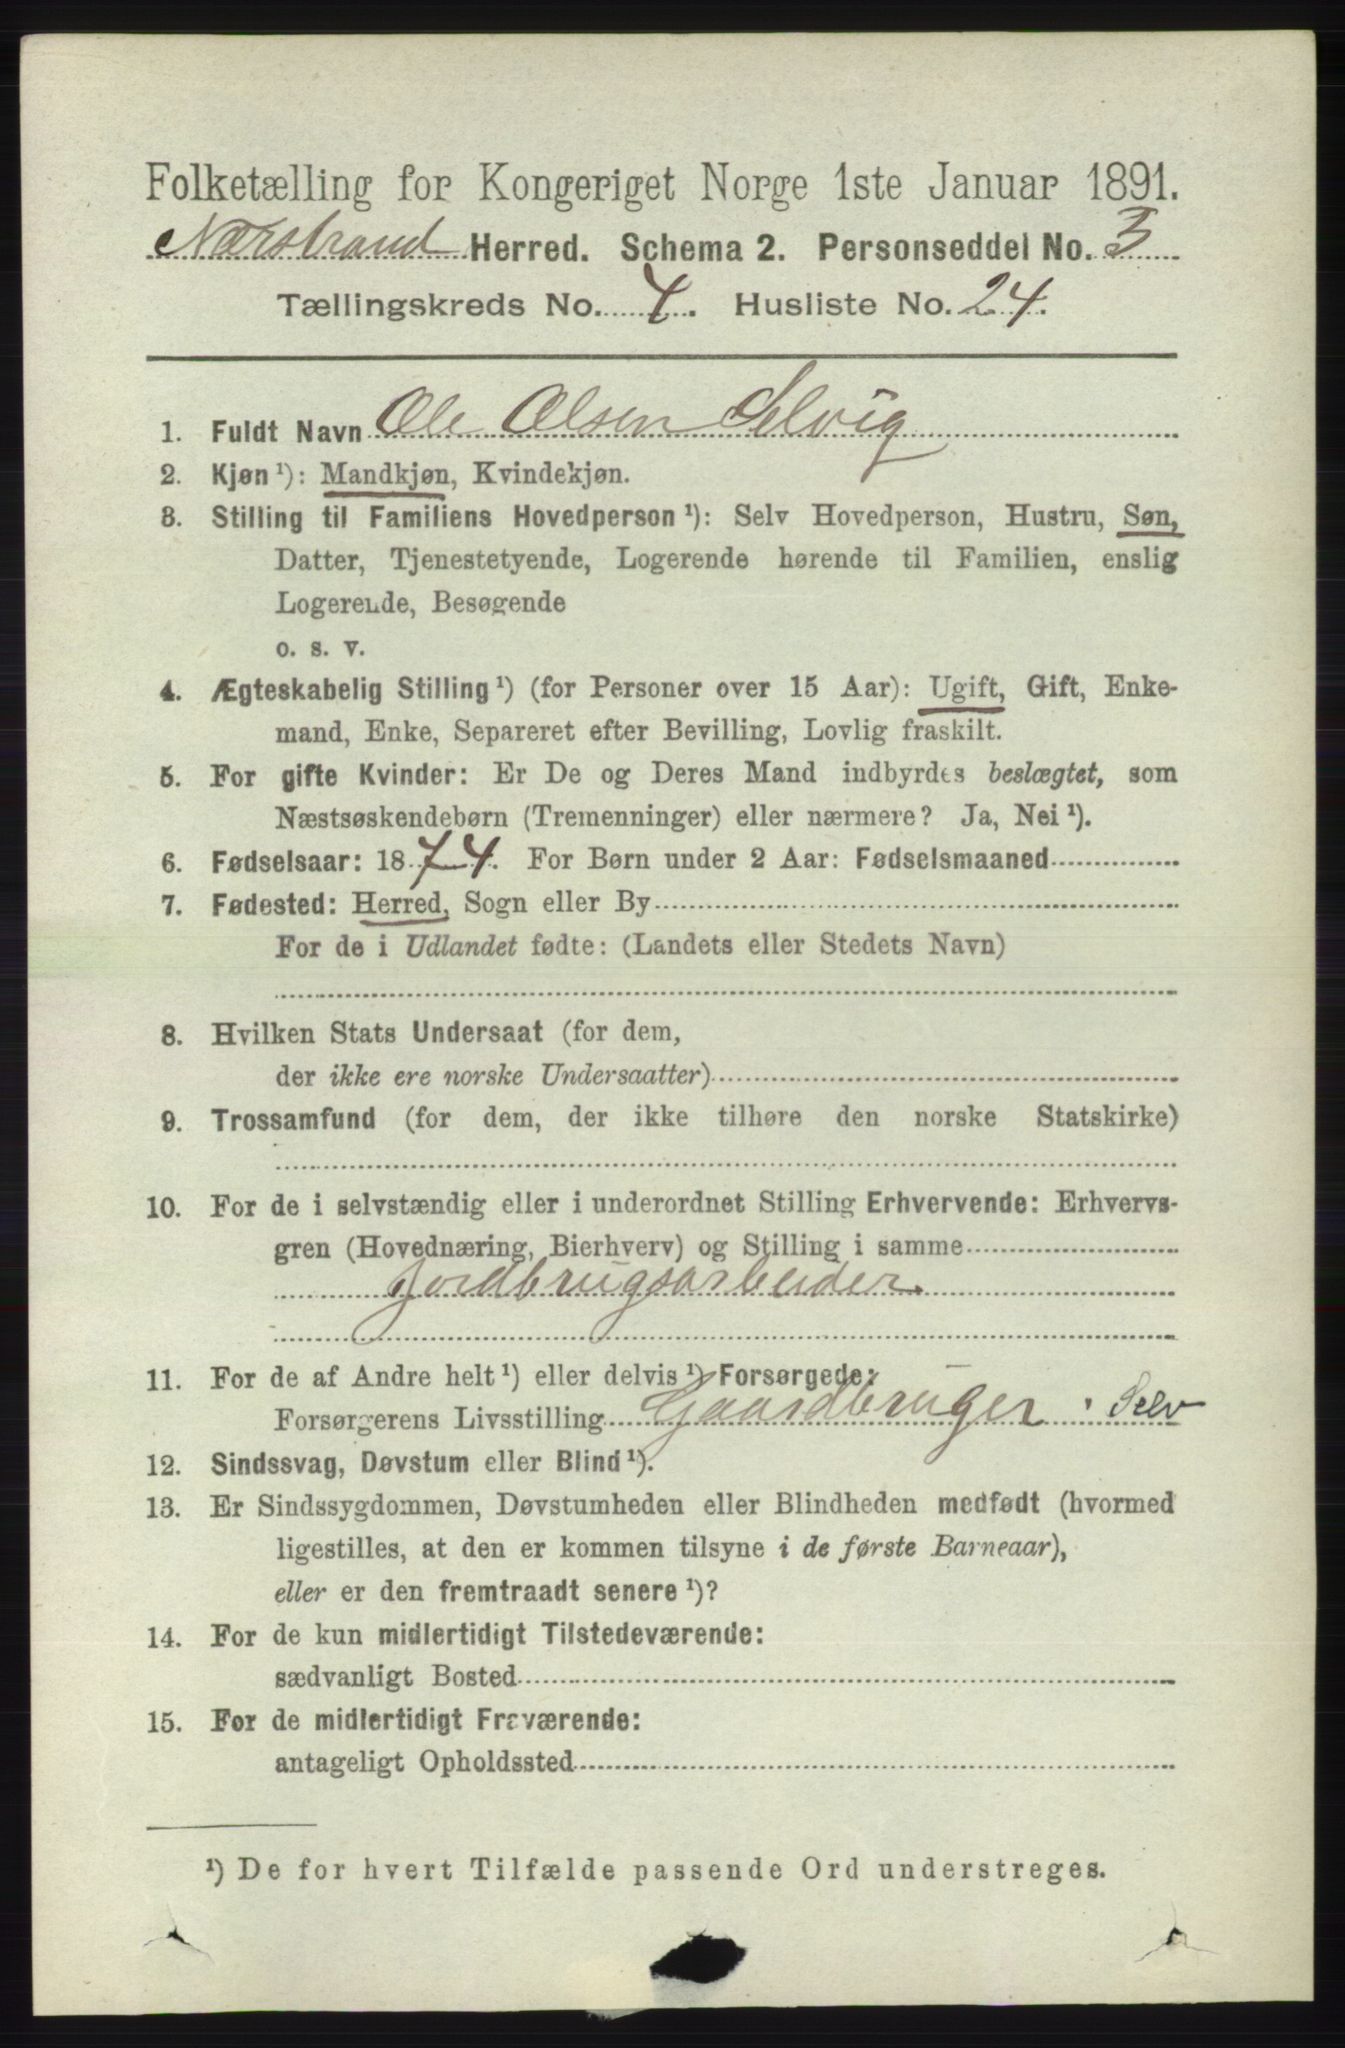 Folketælling for Kongeriget Norge 1ste Januar 1891.
Nærstrand Herred. Schema 2. Personseddel No. 3
Tællingskreds No. 4. Husliste No. 24.
1. Fuldt Navn Ole Olsen Selvig
2. Kjøn ¹): Mandkjøn, Kvindekjøn.
3. Stilling til Familiens Hovedperson ¹): Selv Hovedperson, Hustru, Søn,
Datter, Tjenestetyende, Logerende hørende til Familien, enslig
Logerende, Besøgende
o. s. v.
4. Ægteskabelig Stilling ¹) (for Personer over 15 Aar): Ugift, Gift, Enke-
mand, Enke, Separeret efter Bevilling, Lovlig fraskilt.
5. For gifte Kvinder: Er De og Deres Mand indbyrdes beslægtet, som
Næstsøskendebørn (Tremenninger) eller nærmere? Ja, Nei ¹).
6. Fødselsaar: 1874. For Børn under 2 Aar: Fødselsmaaned
7. Fødested: Herred, Sogn eller By
For de i Udlandet fødte: (Landets eller Stedets Navn)
8. Hvilken Stats Undersaat (for dem,
der ikke ere norske Undersaatter)
9. Trossamfund (for dem, der ikke tilhøre den norske Statskirke)
10. For de i selvstændig eller i underordnet Stilling Erhvervende: Erhvervs-
gren (Hovednæring, Bierhverv) og Stilling i samme
Jordbrugsarbeider.
11. For de af Andre helt ¹) eller delvis ¹) Forsørgede:
Forsørgerens Livsstilling Gaardbruger · Selv
12. Sindssvag, Døvstum eller Blind ¹).
13. Er Sindssygdommen, Døvstumheden eller Blindheden medfødt (hvormed
ligestilles, at den er kommen tilsyne i de første Barneaar),
eller er den fremtraadt senere ¹)?
14. For de kun midlertidigt Tilstedeværende:
sædvanligt Bosted
15. For de midlertidigt Fraværende:
antageligt Opholdssted
¹) De for hvert Tilfælde passende Ord understreges.